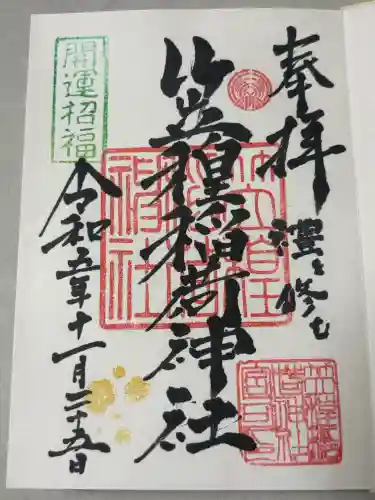 奉拝 禮を修む
笠䅣稲荷神社
開運招福
令和五年十一月二十五日